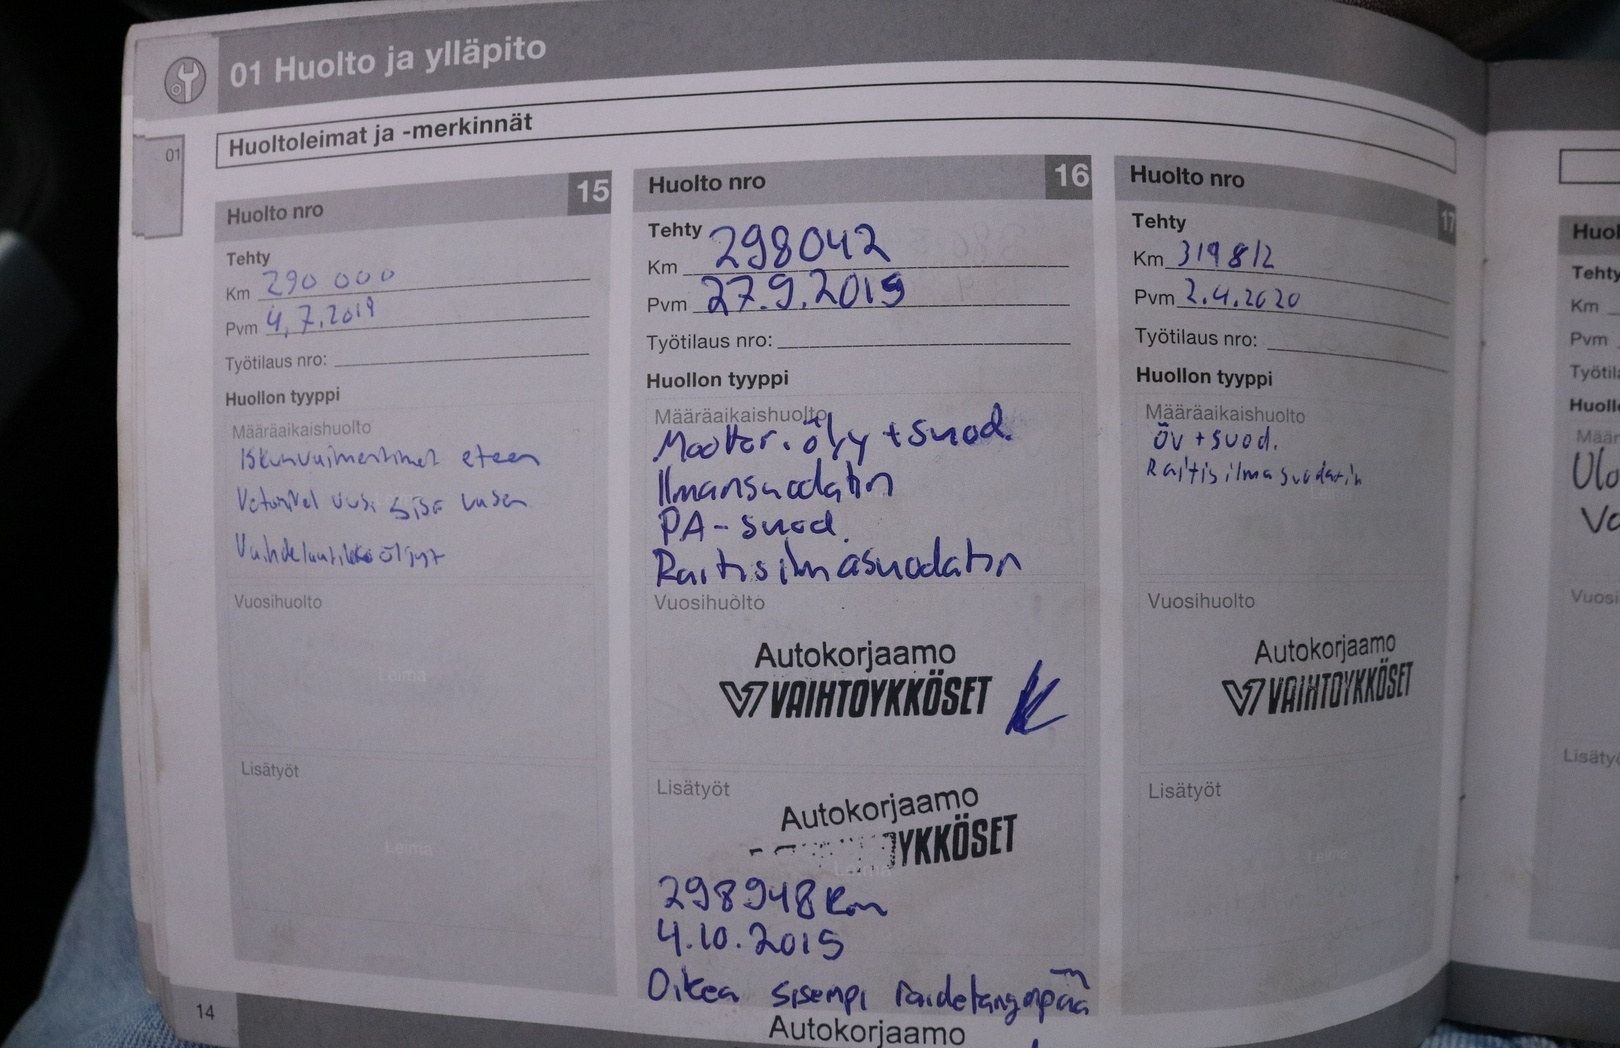 01 Huolto ja ylläpito
Huoltoleimat ja -merkinnät
01
Huolto nro 15
Tehty
Km 290 000
Pvm 4.7.2019
Työtilaus nro:
Huollon tyyppi
Määräaikaishuolto
Iskunvaimentimet eteen
Vetonivel uusi sisä vasen
Vaihdelaatikko öljyt
Vuosihuolto
Leima
Lisätyöt
Leima
Huolto nro 16
Tehty
Km 298042
Pvm 27.9.2019
Työtilaus nro:
Huollon tyyppi
Määräaikaishuolto
Moottor. öljy + suod.
Ilmansuodatin
PA-suod.
Raitisilmasuodatin
Vuosihuolto
Autokorjaamo
VAIHTOYKKÖSET
Lisätyöt
Autokorjaamo
YKKÖSET
298948 km
4.10.2019
Oikea sisempi raidetangonpää
Autokorjaamo
Huolto nro 17
Tehty
Km 319812
Pvm 2.4.2020
Työtilaus nro:
Huollon tyyppi
Määräaikaishuolto
Leima
ÖV + suod.
Raitisilmasuodatin
Vuosihuolto
Autokorjaamo
VAIHTOYKKÖSET
Lisätyöt
Leima
14
Huol
Tehty
Km
Pvm
Työtila
Huoll
Määr
Ulo
Vuosi
Lisäty